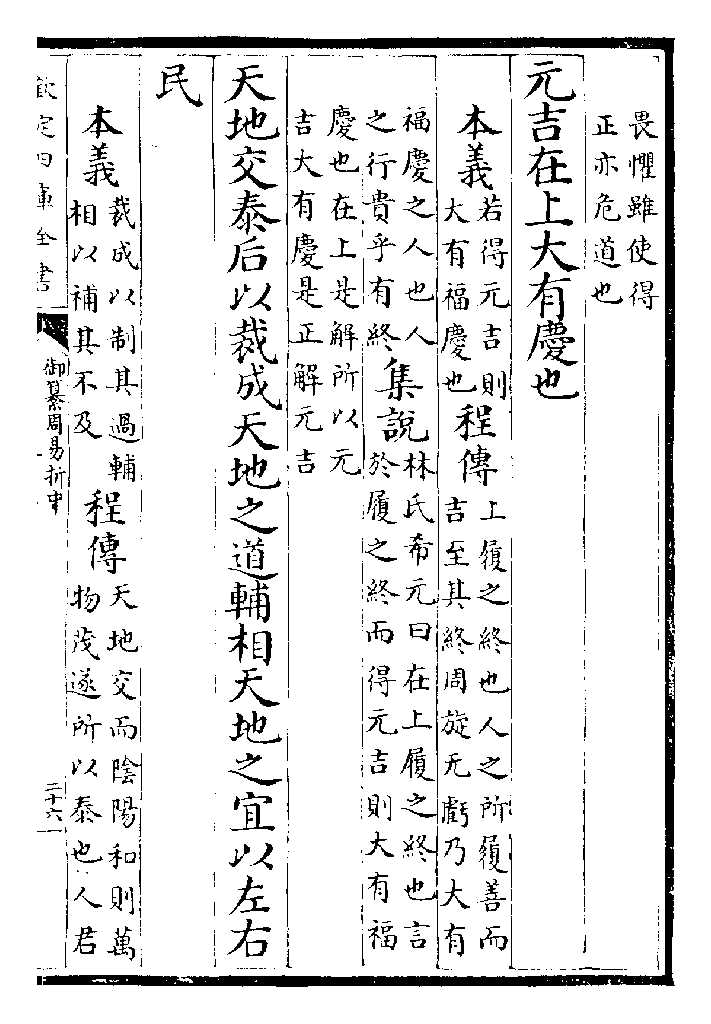 畏懼雖使得
正亦危道也
元吉在上大有慶也
本義
若得元吉則
大有福慶也
程傳
上履之終也人之所履善而
吉至其終周旋无虧乃大有
福慶之人也人
之行貴乎有終
集說
林氏希元曰在上履之終也言
於履之終而得元吉則大有福
慶也在上是解所以元
吉大有慶是正解元吉
天地交泰后以裁成天地之道輔相天地之宜以左右
民
本義
裁成以制其過輔
相以補其不及
程傳
天地交而陰陽和則萬
物茂遂所以泰也人君
欽定四庫全書
御纂周易折中
二十六